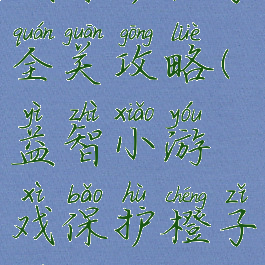 quán guān gōng lüè
全关攻略(
yì zhì xiǎo yóu
益智小游
xì bǎo hù chéng zǐ
戏保护橙子